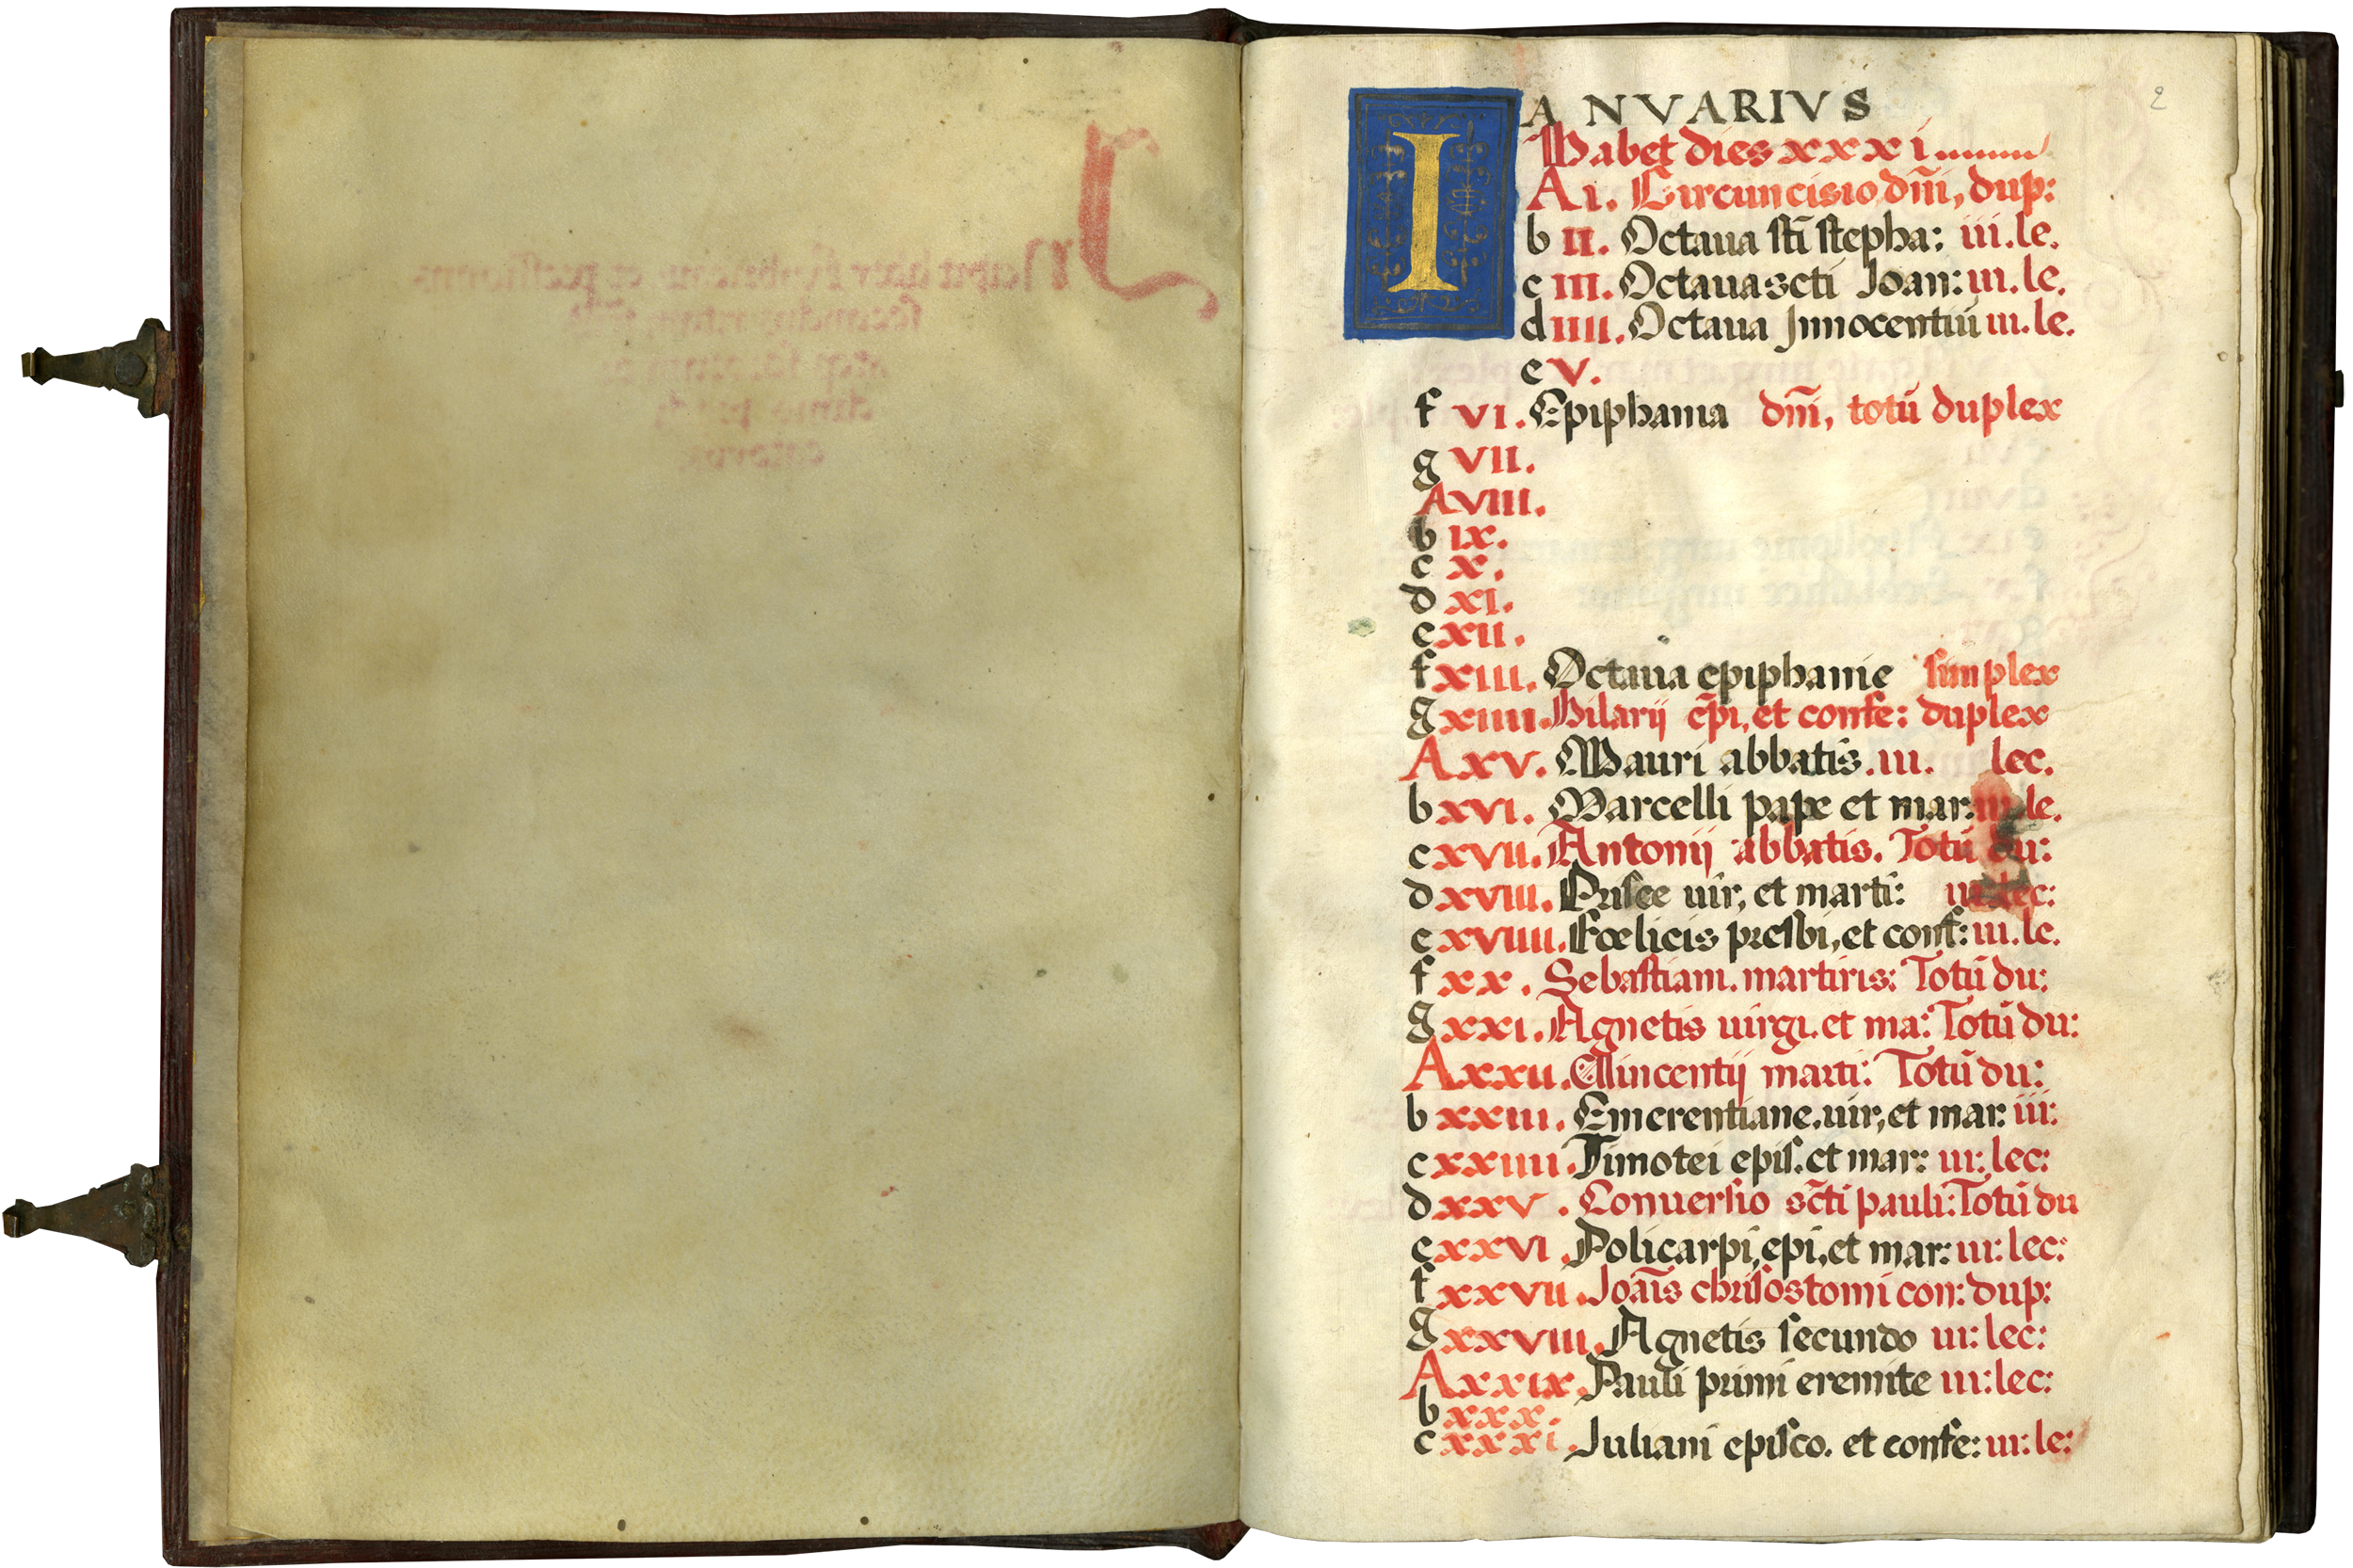 2
IANVARIVS
Habet dies xxxi
A i. Circuncisio dñi, dup:
b ii. Octaua sti stepha: iii. le.
c iii. Octaua scti Joan: iii. le.
d iiii. Octaua Innocentiũ iii. le.
e v.
f vi. Epiphania dñi, totũ duplex
g vii.
A viii.
b ix.
c x.
d xi.
e xii.
f xiii. Octaua epiphanie simplex
g xiiii. Hilarij ep̃i, et confe: duplex
A xv. Mauri abbatis. iii. lec.
b xvi. Marcelli pape et mar: iii le.
c xvii. Antonij abbatis. Totũ du:
d xviii. Prisce uir, et marti: iii lec:
e xviiii. Fœlicis presbi, et conf: iii. le.
f xx. Sebastiani. martiris: Totũ du:
g xxi. Agnetis uirgi. et ma: Totũ du:
A xxii. Vincentij marti: Totũ du:
b xxiii. Emerentiane. uir, et mar: iii:
c xxiiii. Timotei epis. et mar: iii: lec:
d xxv. Conuersio sc̃ti pauli: Totũ du
e xxvi. Policarpi, epi, et mar: iii: lec:
f xxvii. Joãis chrisostomi con: dup:
g xxviii. Agnetis secundo iii: lec:
A xxix. Pauli primi eremite iii: lec:
b xxx.
c xxxi. Juliani episco. et confe: iii: le: